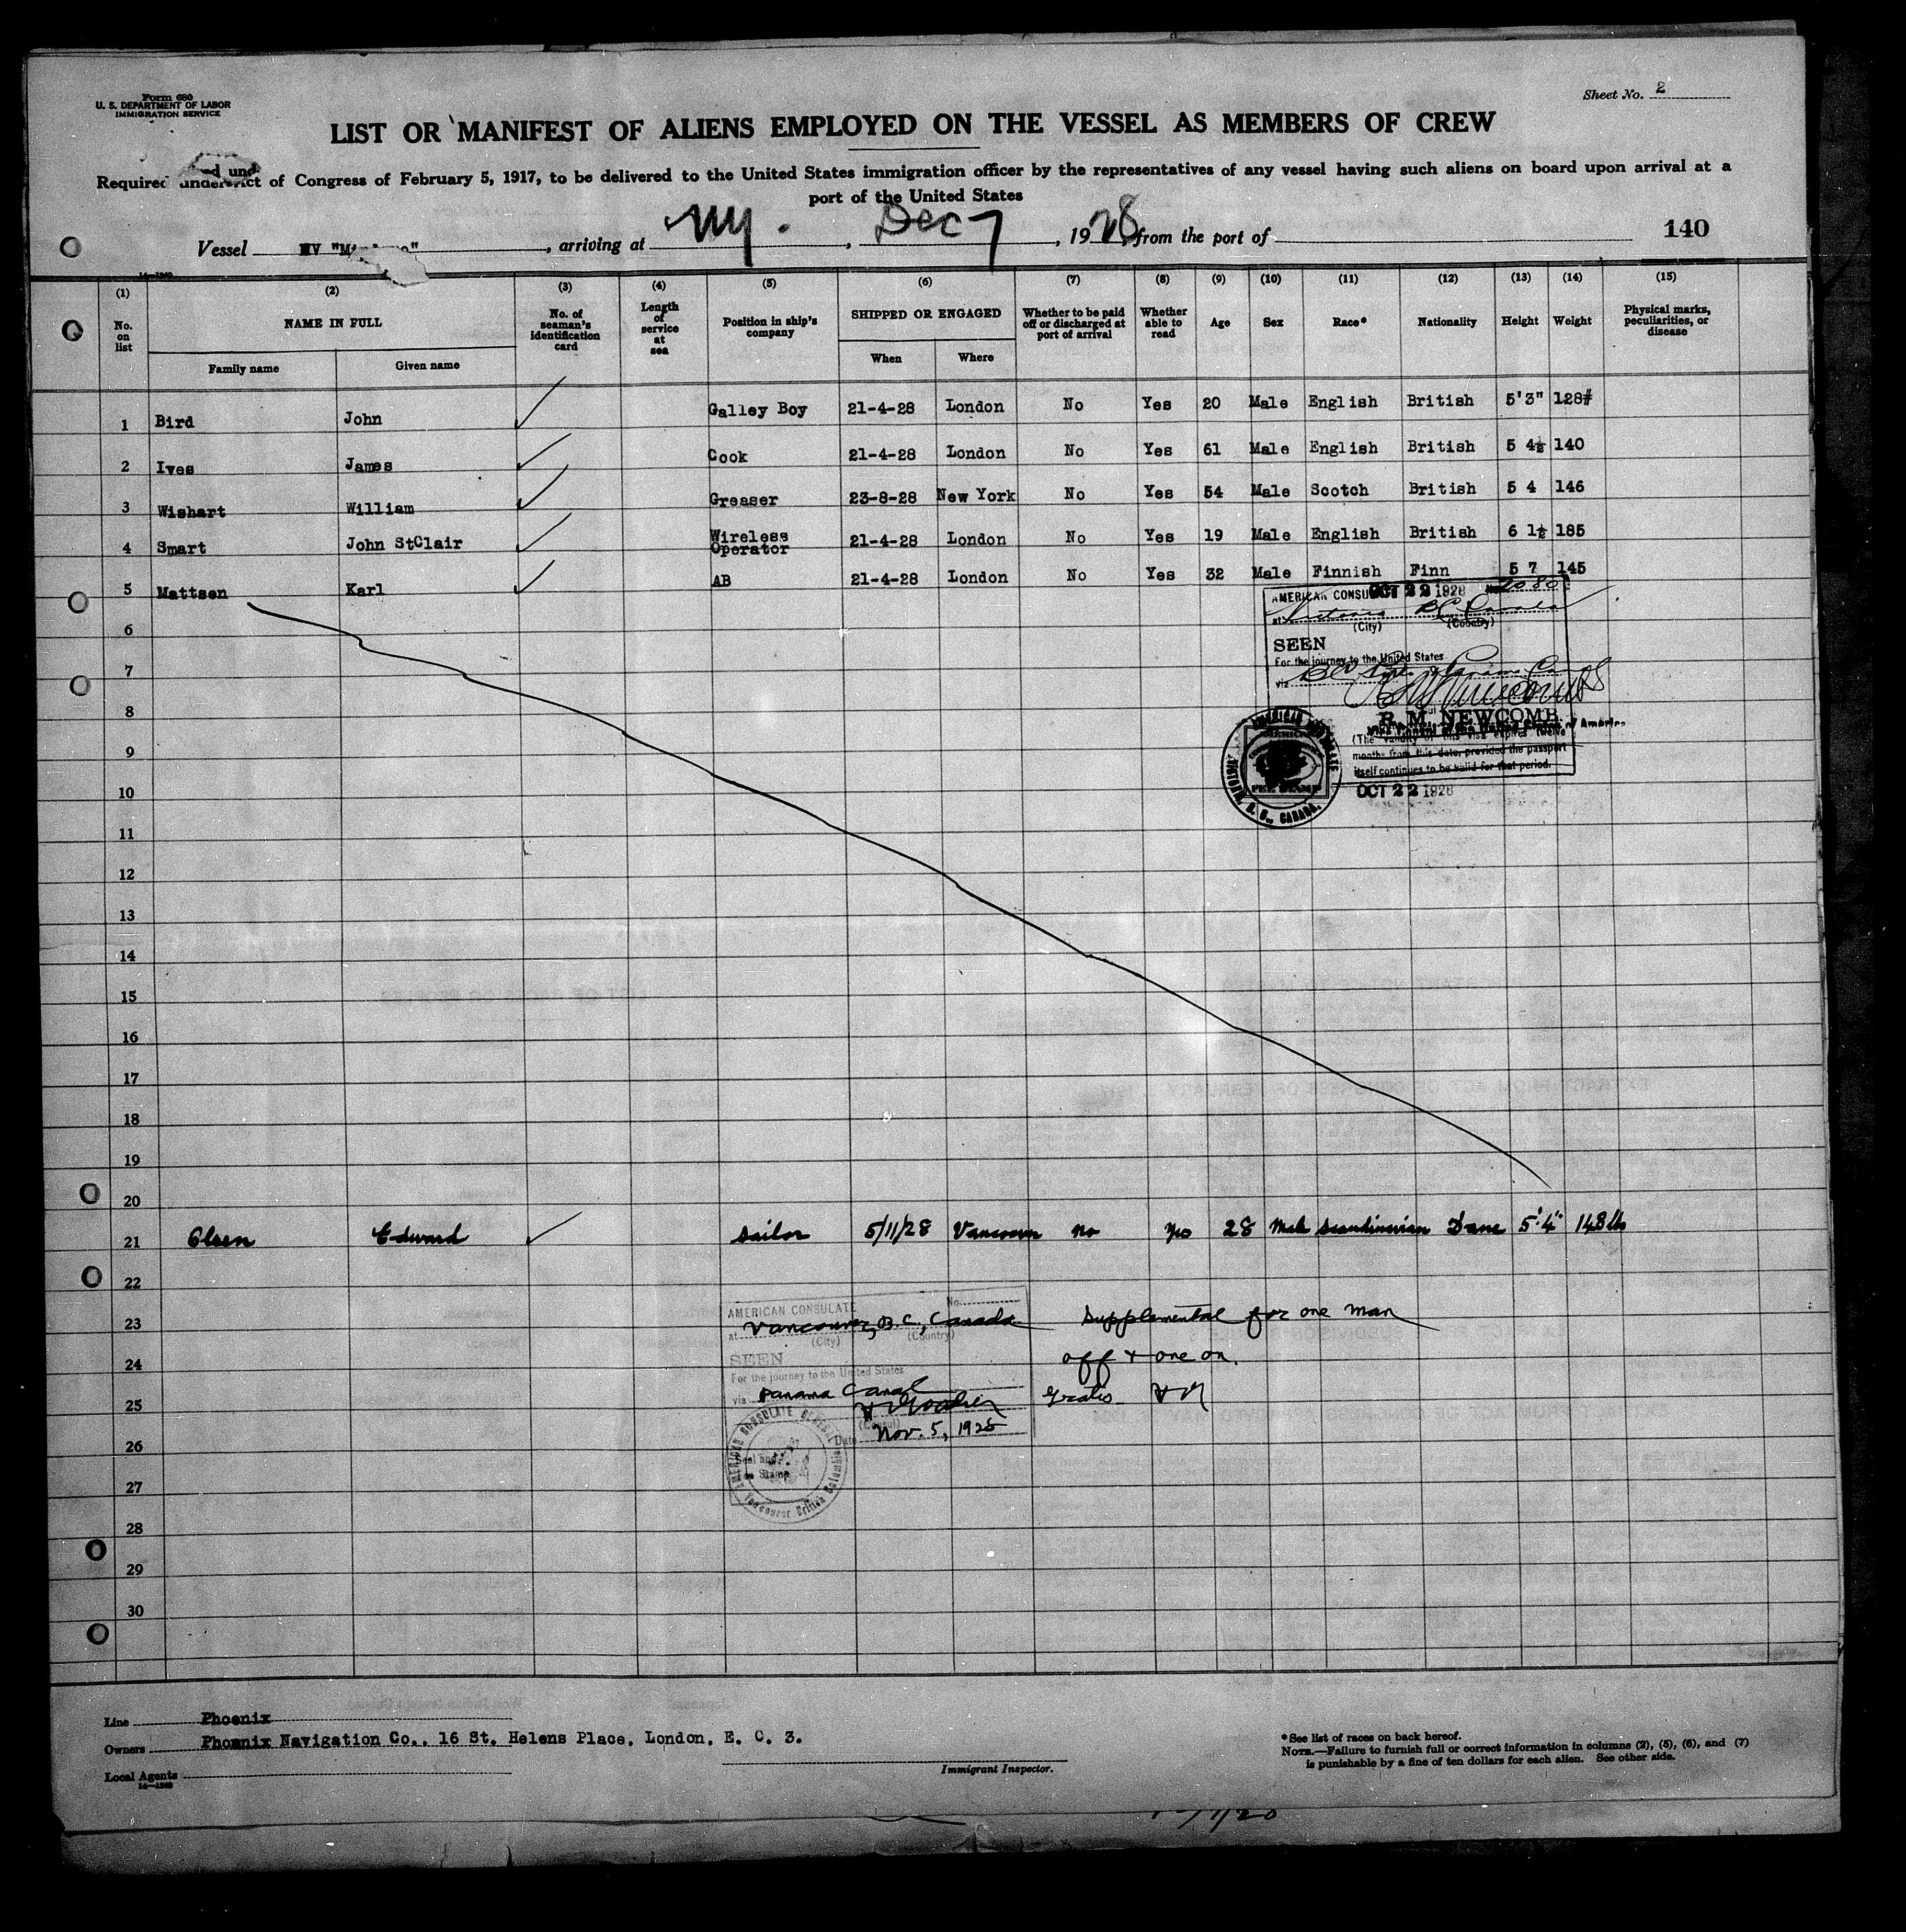 Form 680
U. S. DEPARTMENT OF LABOR
IMMIGRATION SERVICE
Sheet No. 2
LIST OR MANIFEST OF ALIENS EMPLOYED ON THE VESSEL AS MEMBERS OF CREW
Required under Act of Congress of February 5, 1917, to be delivered to the United States immigration officer by the representatives of any vessel having such aliens on board upon arrival at a
port of the United States
Vessel MV "M , arriving at NY. , Dec 7 , 1928, from the port of 140
(1) (2) (3) (4) (5) (6) (7) (8) (9) (10) (11) (12) (13) (14) (15)
No. on list NAME IN FULL No. of seaman's identification card Length of service at sea Position in ship's company SHIPPED OR ENGAGED Whether to be paid off or discharged at port of arrival Whether able to read Age Sex Race* Nationality Height Weight Physical marks, peculiarities, or disease
Family name Given name When Where
1 Bird John Galley Boy 21-4-28 London No Yes 20 Male English British 5'3" 128#
2 Ives James Cook 21-4-28 London No Yes 61 Male English British 5 4½ 140
3 Wishart William Greaser 23-8-28 New York No Yes 54 Male Scotch British 5 4 146
4 Smart John StClair Wireless Operator 21-4-28 London No Yes 19 Male English British 6 1½ 185
5 Mattsen Karl AB 21-4-28 London No Yes 32 Male Finnish Finn 5 7 145
AMERICAN CONSU OCT 22 1928
at Victoria B.C. Canada
(City) (Country)
SEEN
For the journey to the United States
via
R. M. NEWCOMB
(The validity of this visa expires twelve
months from this date, provided the passport
itself continues to be valid for that period.
OCT 22 1928
VICTORIA, B. C., CANADA.
6
7
8
9
10
11
12
13
14
15
16
17
18
19
20
21 Olsen Edward Sailor 5/11/28 Vancouver No Yes 28 Male Scandinavian Dane 5'.4" 148 lbs
22
23
24
25
26
27
28
29
30
AMERICAN CONSULATE No.
at Vancouver, B.C., Canada
(City) (Country)
SEEN
For the journey to the United States
via Panama Canal
(Consul)
Date Nov. 5, 1928
AMERICAN CONSULATE GENERAL
Vancouver British Columbia
Supplemental for one man
off + one on.
Gratis
Line Phoenix
Owners Phoenix Navigation Co., 16 St. Helens Place, London, E. C. 3.
Local Agents
Immigrant Inspector.
*See list of races on back hereof.
NOTE.—Failure to furnish full or correct information in columns (2), (5), (6), and (7)
is punishable by a fine of ten dollars for each alien. See other side.